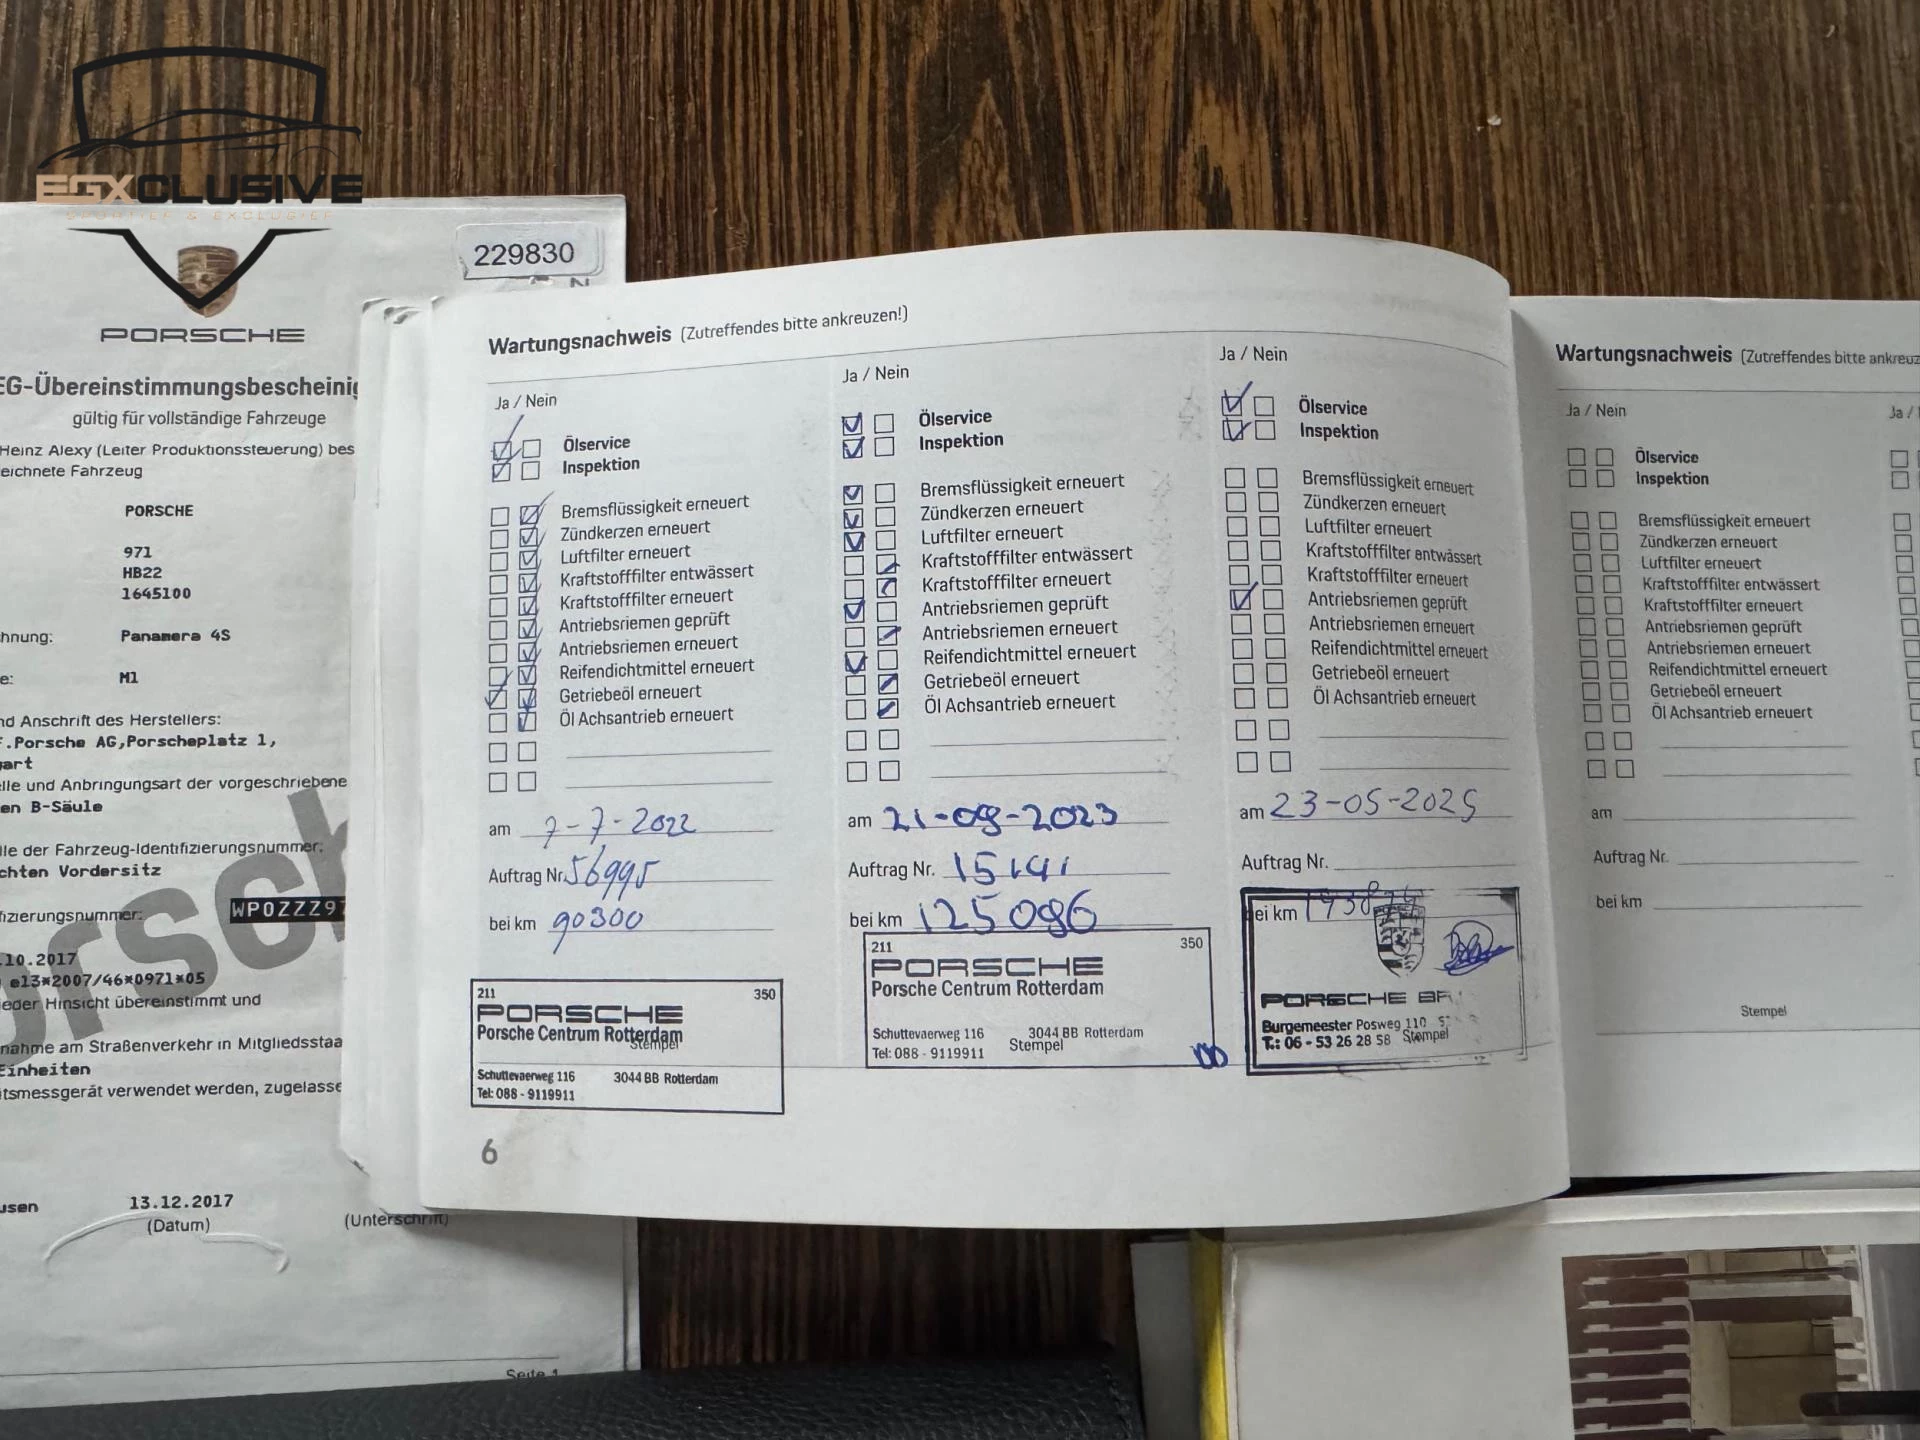 EGXCLUSIVE
SPORTIEF & EXCLUSIEF
229830
PORSCHE
EG-Übereinstimmungsbescheinig
gültig für vollständige Fahrzeuge
Heinz Alexy (Leiter Produktionssteuerung) bes
eichnete Fahrzeug
PORSCHE
971
HB22
1645100
hnung: Panamera 4S
e: M1
nd Anschrift des Herstellers:
F.Porsche AG,Porscheplatz 1,
gart
lle und Anbringungsart der vorgeschriebene
en B-Säule
lle der Fahrzeug-Identifizierungsnummer:
chten Vordersitz
fizierungsnummer: WP0ZZZ97
.10.2017
e13*2007/46*0971*05
jeder Hinsicht übereinstimmt und
nahme am Straßenverkehr in Mitgliedsstaa
Einheiten
tsmessgerät verwendet werden, zugelasse
usen 13.12.2017
(Datum) (Unterschrift)
Seite 1
Wartungsnachweis (Zutreffendes bitte ankreuzen!)
Ja / Nein
Ölservice
Inspektion
Bremsflüssigkeit erneuert
Zündkerzen erneuert
Luftfilter erneuert
Kraftstofffilter entwässert
Kraftstofffilter erneuert
Antriebsriemen geprüft
Antriebsriemen erneuert
Reifendichtmittel erneuert
Getriebeöl erneuert
Öl Achsantrieb erneuert
am 7-7-2022
Auftrag Nr. 56995
bei km 90300
211 350
PORSCHE
Porsche Centrum Rotterdam
Stempel
Schuttevaerweg 116 3044 BB Rotterdam
Tel: 088 - 9119911
6
Ja / Nein
Ölservice
Inspektion
Bremsflüssigkeit erneuert
Zündkerzen erneuert
Luftfilter erneuert
Kraftstofffilter entwässert
Kraftstofffilter erneuert
Antriebsriemen geprüft
Antriebsriemen erneuert
Reifendichtmittel erneuert
Getriebeöl erneuert
Öl Achsantrieb erneuert
am 21-08-2023
Auftrag Nr.
bei km 125086
211 350
PORSCHE
Porsche Centrum Rotterdam
Schuttevaerweg 116 3044 BB Rotterdam
Tel: 088 - 9119911 Stempel
Ja / Nein
Ölservice
Inspektion
Bremsflüssigkeit erneuert
Zündkerzen erneuert
Luftfilter erneuert
Kraftstofffilter entwässert
Kraftstofffilter erneuert
Antriebsriemen geprüft
Antriebsriemen erneuert
Reifendichtmittel erneuert
Getriebeöl erneuert
Öl Achsantrieb erneuert
am 23-05-2025
Auftrag Nr.
bei km
PORSCHE
Burgemeester Posweg 110
T.: 06 - 53 26 28 58 Stempel
Wartungsnachweis (Zutreffendes bitte ankreuz
Ja / Nein
Ölservice
Inspektion
Bremsflüssigkeit erneuert
Zündkerzen erneuert
Luftfilter erneuert
Kraftstofffilter entwässert
Kraftstofffilter erneuert
Antriebsriemen geprüft
Antriebsriemen erneuert
Reifendichtmittel erneuert
Getriebeöl erneuert
Öl Achsantrieb erneuert
am
Auftrag Nr.
bei km
Stempel
Ja /